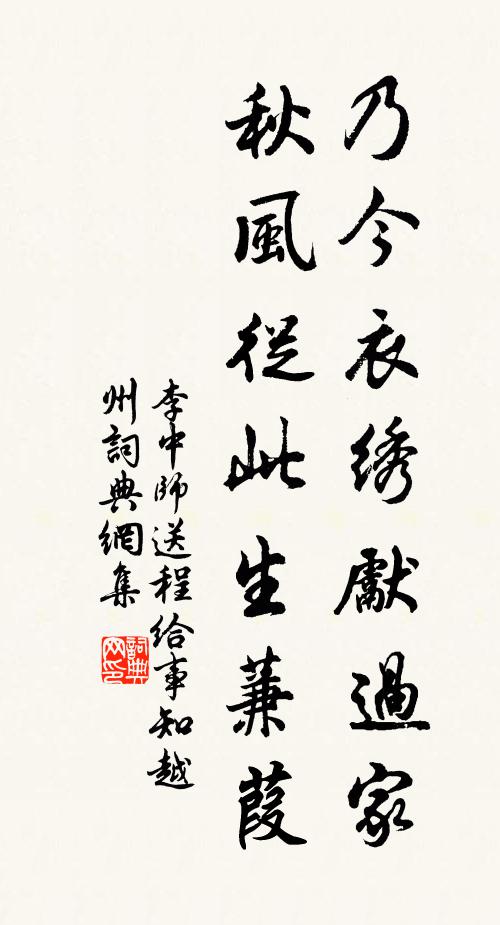 乃今衣绣獻過家
秋風從此生蒹葭
李中師送程给事知越
州詞典網集
詞典网印